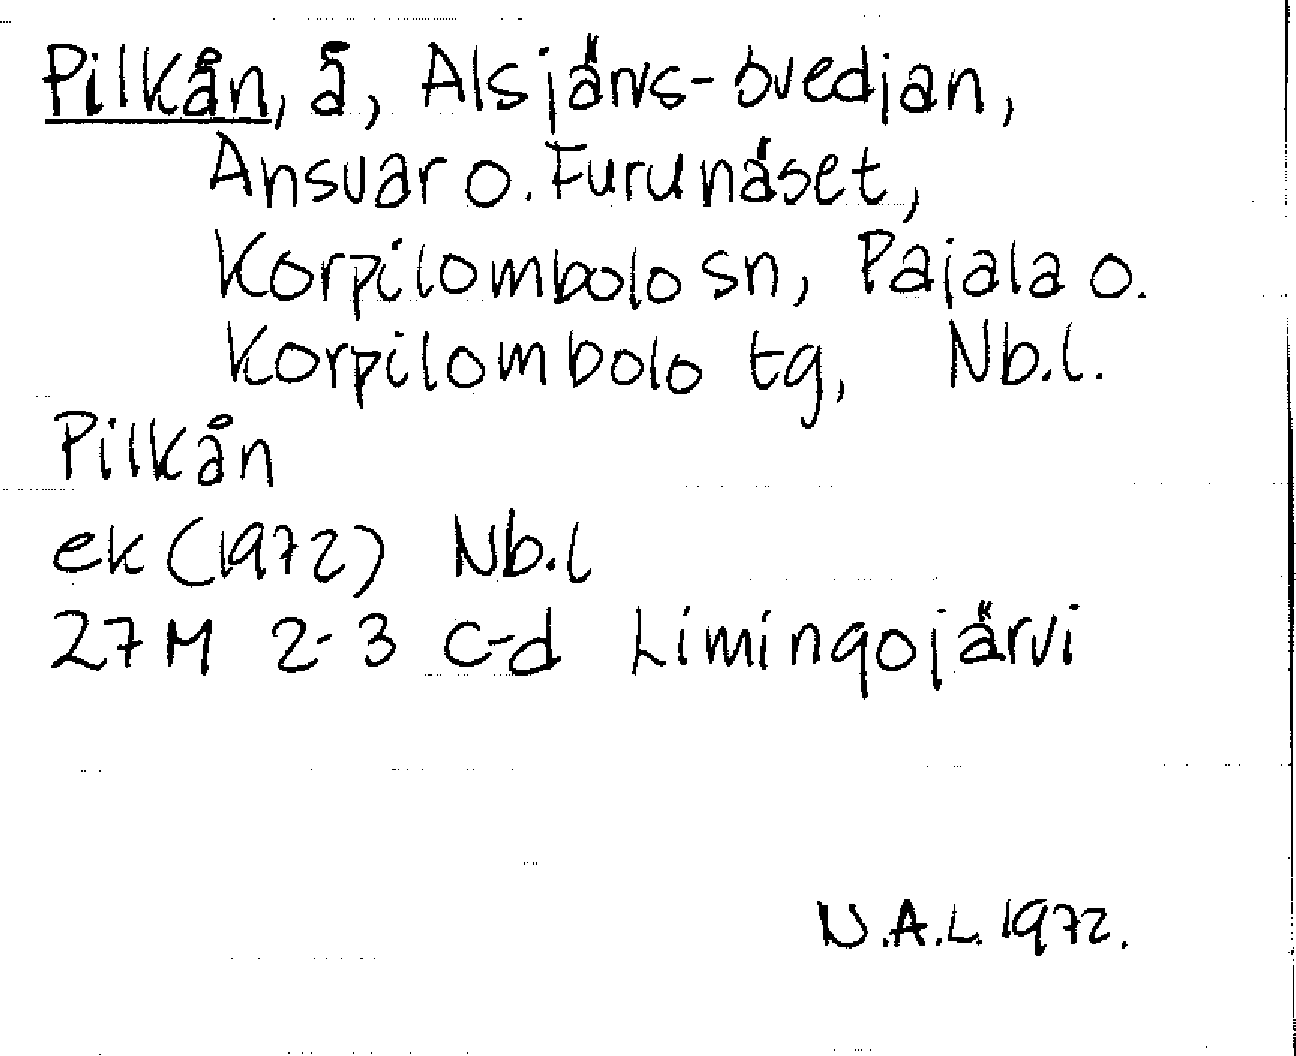 Pilkån, å, Alsjärvs-svedjan,
Ansvar o. Furunäset,
Korpilombolo sn, Pajala o.
Korpilombolo tg, Nb.l.
Pilkån
ek (1972) Nb.l
27M 2-3 c-d Limingojärvi
N.A.L. 1972.